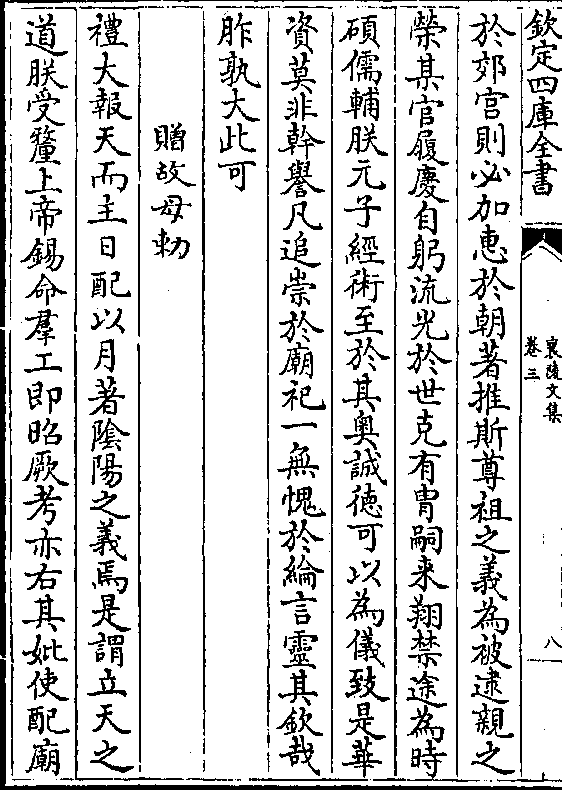 欽定四庫全書
襄陵文集
卷三
八
於郊宫則必加惠於朝著推斯尊祖之義為被逮親之
榮某官履慶自躬流光於世克有胄嗣来翔禁途為時
碩儒輔朕元子經術至於其奥誠徳可以為儀致是華
資莫非幹譽凡追崇於廟祀一無愧於綸言靈其欽哉
胙孰大此可
贈故母勅
禮大報天而主日配以月著隂陽之義焉是謂立天之
道朕受釐上帝錫命羣工即昭厥考亦右其妣使配廟